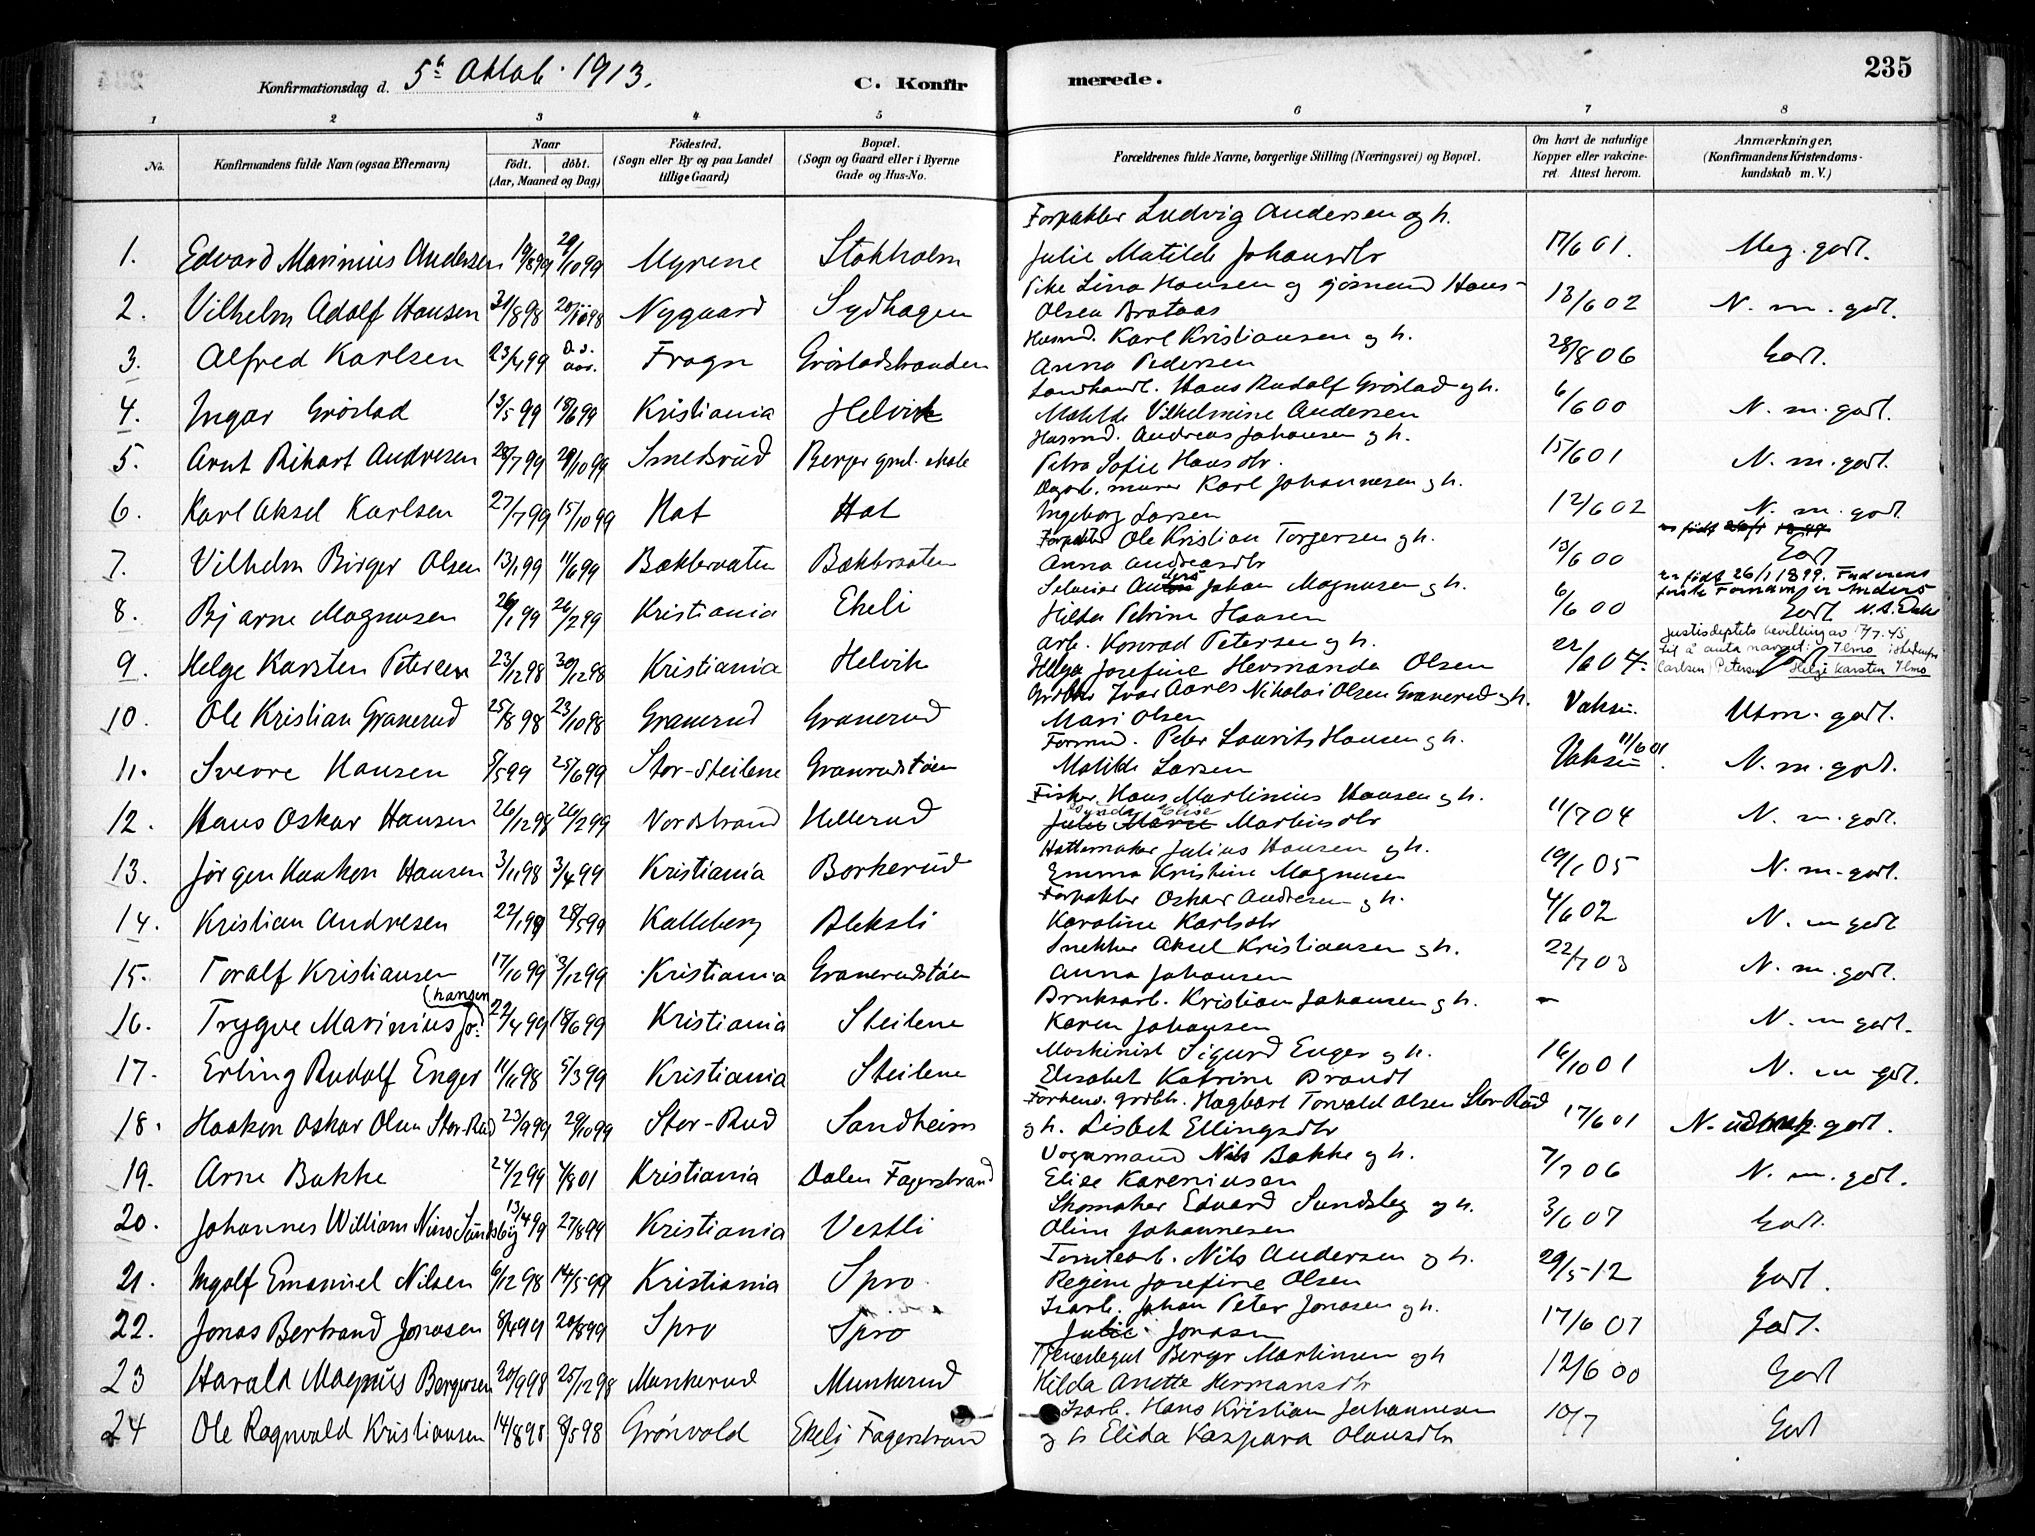 Konfirmationsdag d. 5te Oktob. 1913. C. Konfirmerede. 235
1 2 3 4 5 6 7 8
No. Konfirmandens fulde Navn (ogsaa Efternavn) Naar födt. döbt. (Aar, Maaned og Dag) Födested. (Sogn eller By og paa Landet tillige Gaard) Bopæl. (Sogn og Gaard eller i Byerne Gade og Hus-No. Forældrenes fulde Navne, borgerlige Stilling (Næringsvei) og Bopæl. Om havt de naturlige Kopper eller vakcineret. Attest herom. Anmærkninger. (Konfirmandens Kristendomskundskab m. V.)
Forpakter Ludvig Andersen og h.
1. Edvard Marinius Andersen 19/8 99 29/10 99 Myrene Stokholm Julie Matilde Johansdtr 17/6 01. Meg. godt.
Pike Lina Hansen og gjømand Hans
2. Vilhelm Adolf Hansen 31/8 98 20/10 98 Nygaard Sydhagen Olsen Brataas 13/6 02 N. m. godt.
Husmd. Karl Kristiansen og h.
3. Alfred Karlsen 23/4 99 D.s. aar. Frogn Gröstadstranden Anna Pedersen 28/8 06 Godt.
Landhandl. Hans Rudolf Gröstad og h.
4. Ingar Gröstad 13/5 99 18/6 99 Kristiania Helvik Matilde Vilhelmine Andersen 6/6 00 N. m. godt.
Husmd. Andreas Johansen og h.
5. Arnt Rikart Andresen 28/7 99 29/10 99 Smedsrud Berger Petra Sofie Hansdtr. 15/6 01 N. m. godt.
Dagarb. murer Karl Johannesen og h.
6. Karl Aksel Karlsen 27/7 99 15/10 99 Hat Hat Ingeborg Larsen 12/6 02 N. m. godt.
Forpakter Ole Kristian Torgersen og h.
7. Vilhelm Birger Olsen 13/1 99 11/6 99 Bækkevaten Bækkevaten Anna Andreasdtr 13/6 00 Godt
Selveier Anders Johan Magnusen og h. er født 26/1 1899. Faderens
8. Bjarne Magnusen 26/1 99 26/2 99 Kristiania Ekeli Hilda Petrine Hansen 6/6 00 første Fornavn er Anders Godt
Arb. Konrad Petersen og h. Justisdeptets bevilling av 17/7. 45
9. Helge Karsten Petersen 23/12 98 30/12 98 Kristiania Helvik Helga Josefine Hermanda Olsen 22/6 07. til å anta navnet: Ilmo istedenfor Carlsen) Petersen godt Helge Karsten Ilmo
Grdbr. Ivar Aares Nikolai Olsen Granerud og h.
10. Ole Kristian Granerud 25/8 98 23/10 98 Granerud Granerud Mari Olsen Vaksi. Utm. godt.
Formd. Peter Laurits Hansen og h.
11. Sverre Hansen 8/5 99 25/6 99 Stor-Steilene Granrudstöen Matilde Larsen Vaksi 11/6 01. N. m. godt.
Fisker Hans Martinius Hansen og h.
12. Hans Oskar Hansen 26/12 98 26/2 99 Nordstrand Hellerud Julie Marie Martinsdtr 11/7 04 N. m. godt.
Hattemaker Julius Hansen og h.
13. Jörgen Haakon Hansen 3/11 98 3/4 99 Kristiania Borkerud Emma Kristine Magnusen 19/1 05 N. m. godt.
Forpakter Oskar Andresen og h.
14. Kristian Andresen 22/1 99 28/5 99 Kalleberg Bleksli Karoline Karlsdtr 4/6 02 N. m godt
Snekker Aksel Kristiansen og h.
15. Toralf Kristiansen 17/10 99 3/12 99 Kristiania Granerudstöen Anna Johansen 22/7 03 N. m. godt.
Bruksarb. Kristian Johansen og h.
16. Trygve Marinius Jo- (hansen) 22/4 99 18/6 99 Kristiania Steilene Karen Johansen — N. m godt.
Maskinist Sigurd Enger og h.
17. Erling Rudolf Enger 11/11 98 5/3 99 Kristiania Steilene Elisabet Katrine Brandt 16/10 01 N. m godt.
Forhenv. grdbr. Hagbart Torvald Olsen Stor-Rud
18. Haakon Oskar Olsen Stor-Rud 23/9 99 29/10 99 Stor-Rud Sandheim og h. Lisbet Ellingsdtr 17/6 01 N. godt.
Vognmand Nils Bakke og h.
19. Arne Bakke 24/2 99 4/8 01 Kristiania Dalen Fagerstrand Elise Kareniusen 7/7 06 N. m. godt.
Skomaker Edvard Sundsby og h.
20. Johannes William Nius Sundsby 13/4 99 27/8 99 Kristiania Vestli Oline Johannesen 3/6 07 Godt.
Tomtearb. Nils Andersen og h.
21. Ingolf Emanuel Nilsen 6/12 98 14/5 99 Kristiania Spro. Regine Josefine Olsen 29/5-12 Godt.
Isarb. Johan Peter Jonasen og h.
22. Jonas Bertrand Jonasen 8/4 99 20/8 99 Spro Spro Julie Jonasen 17/6 07 Godt.
Tjenestegut Berger Martinsen og h
23 Harald Magnus Bergersen 20/9 98 25/12 98 Munkerud Munkerud Hilda Anette Hermansdtr 12/6 00 Godt
Isarb. Hans Kristian Johannesen
24 Ole Ragnvald Kristiansen 14/8 98 8/5 98 Grönvold Ekeli Fagerstrand og h Elida Kaspara Olausdtr 10/7 Godt